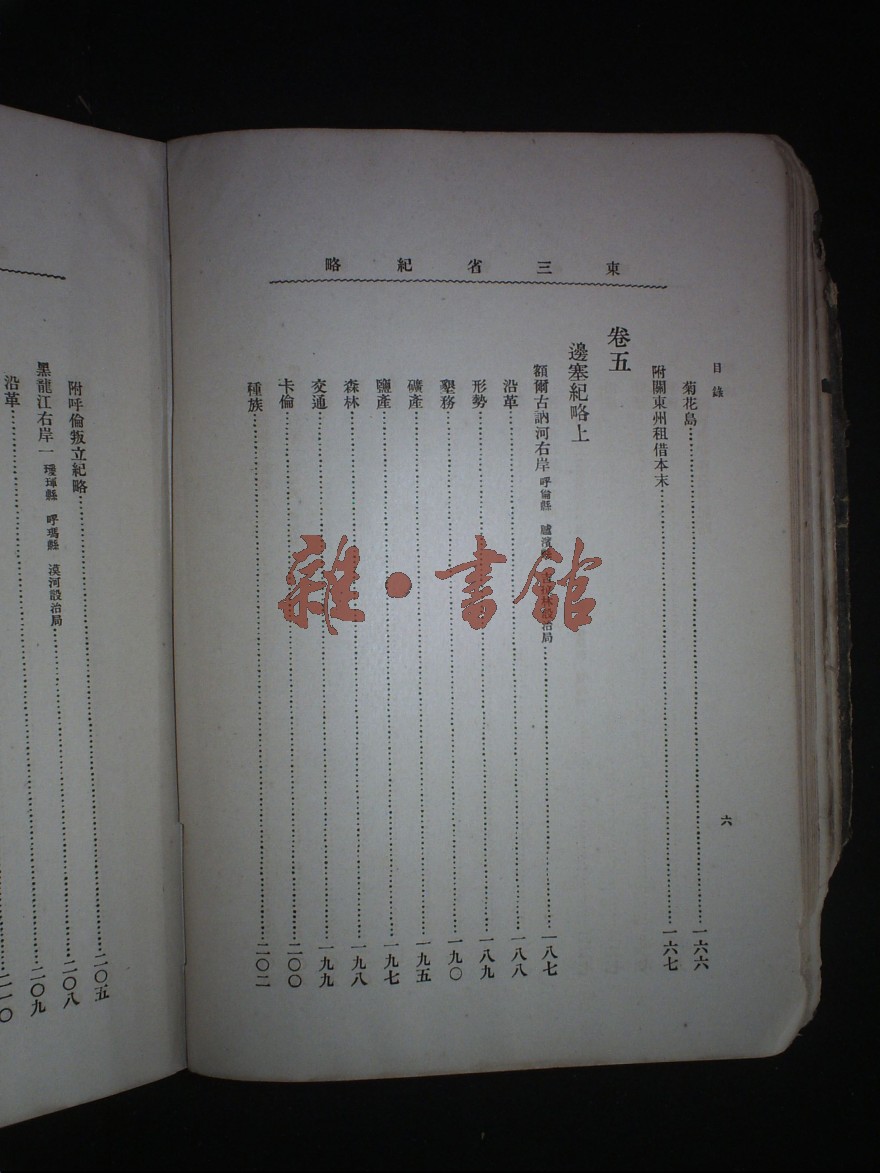 東三省紀略
目錄
六
菊花島 一六六
附關東州租借本末 一六七
卷五
邊塞紀略上
額爾古訥河右岸 呼倫縣 臚濱 治局 一八七
沿革 一八八
形勢 一八九
墾務 一九〇
礦產 一九五
鹽產 一九七
森林 一九八
交通 一九九
卡倫 二〇〇
種族 二〇二
二〇五
附呼倫叛立紀略 二〇八
黑龍江右岸一 璦琿縣 呼瑪縣 漠河設治局 二〇九
沿革 二一〇
雜·書館